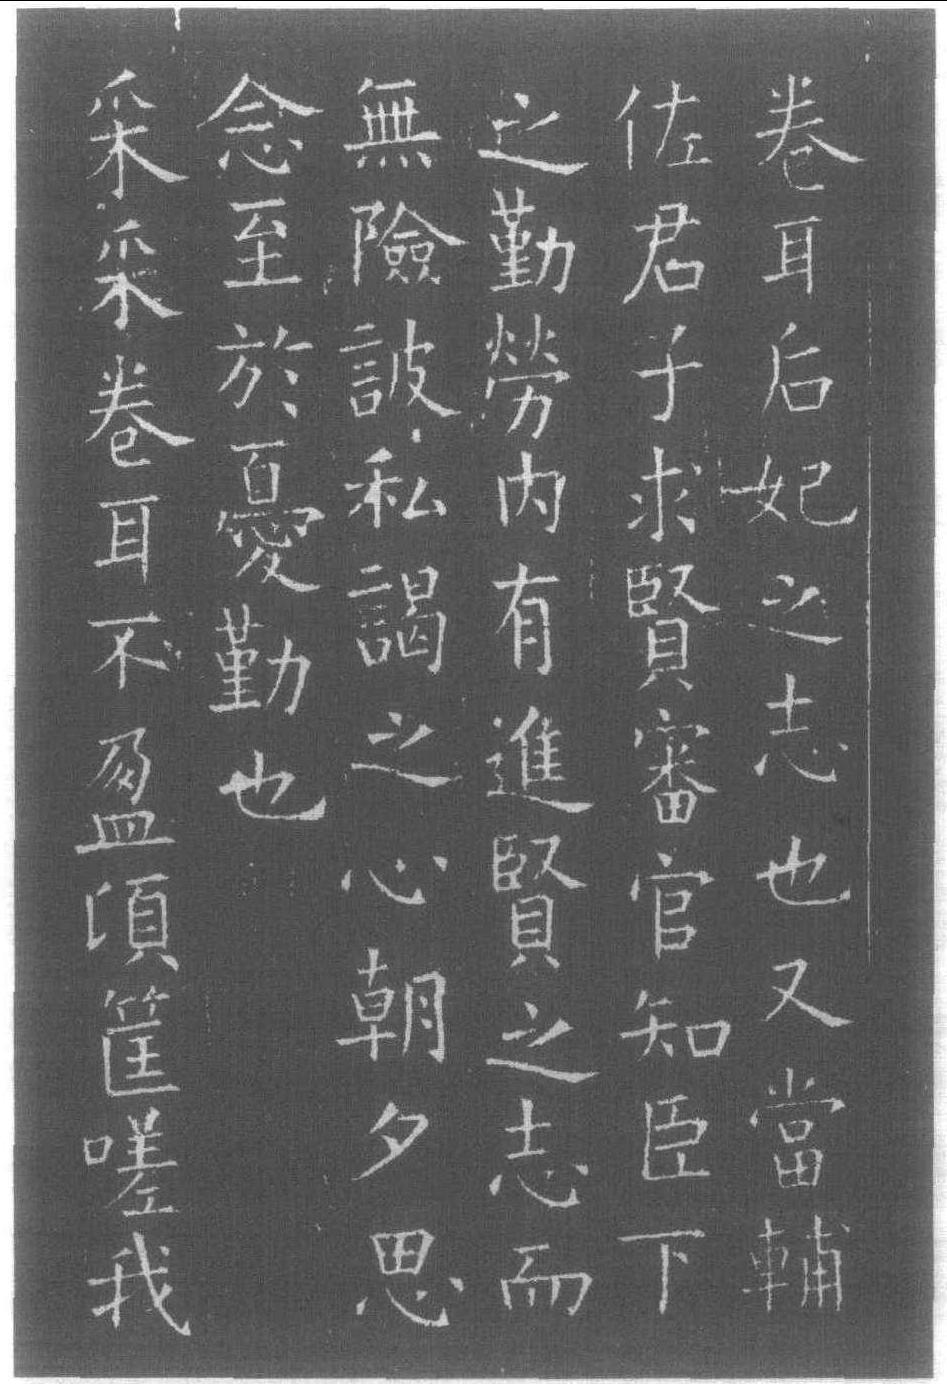 卷耳后妃之志也又當輔
佐君子求賢審官知臣下
之勤勞内有進賢之志而
無險詖私謁之心朝夕思
念至於憂勤也
采采卷耳不盈頃筐嗟我